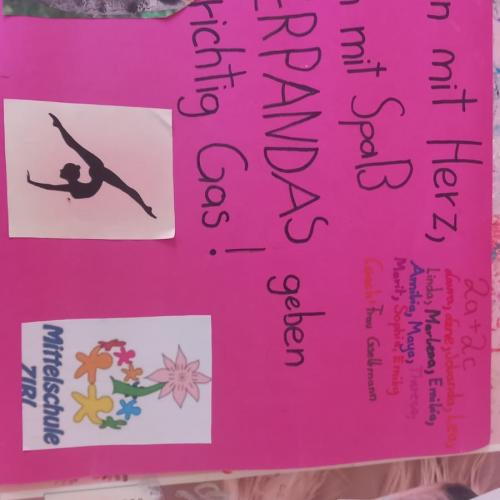 n mit Herz,
n mit Spaß
ERPANDAS geben
richtig Gas!
2a+2c
Laura, Lea,
Linda, Marlena, Emilia,
Annika, Maya, Theresa,
Marit, Sophia, Emily
Coach: Frau
Mittelschule
ZIRL